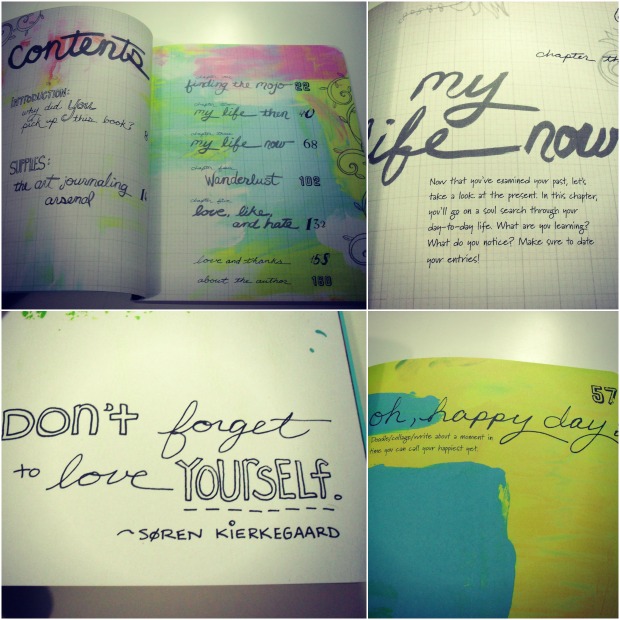 contents
INTRODUCTION:
why did you
pick up this book?
SUPPLIES:
the art journaling
arsenal
finding the mojo 22
my life then 40
my life now 68
Wanderlust 102
love, like,
and hate
love and thanks 158
about the author 160
chapter
my
life now
Now that you've examined your past, let's
take a look at the present. In this chapter,
you'll go on a soul search through your
day-to-day life. What are you learning?
What do you notice? Make sure to date
your entries!
DON'T forget
to love YOURSELF.
~SØREN KIERKEGAARD
57
oh, happy day.
Doodle/collage/write about a moment in
time you can call your happiest yet.